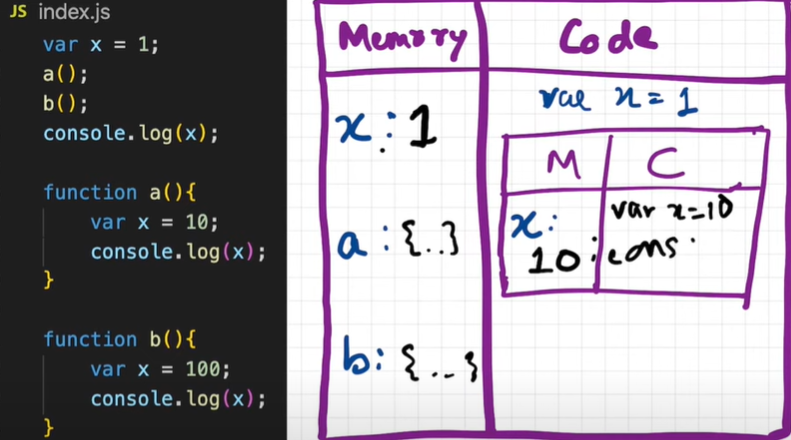 JS index.js
var x = 1;
a();
b();
console.log(x);
function a(){
var x = 10;
console.log(x);
}
function b(){
var x = 100;
console.log(x);
}
Memory
Code
x: 1
a: {..}
b: {..}
var x = 1
M
C
x:
10
var x=10
cons.